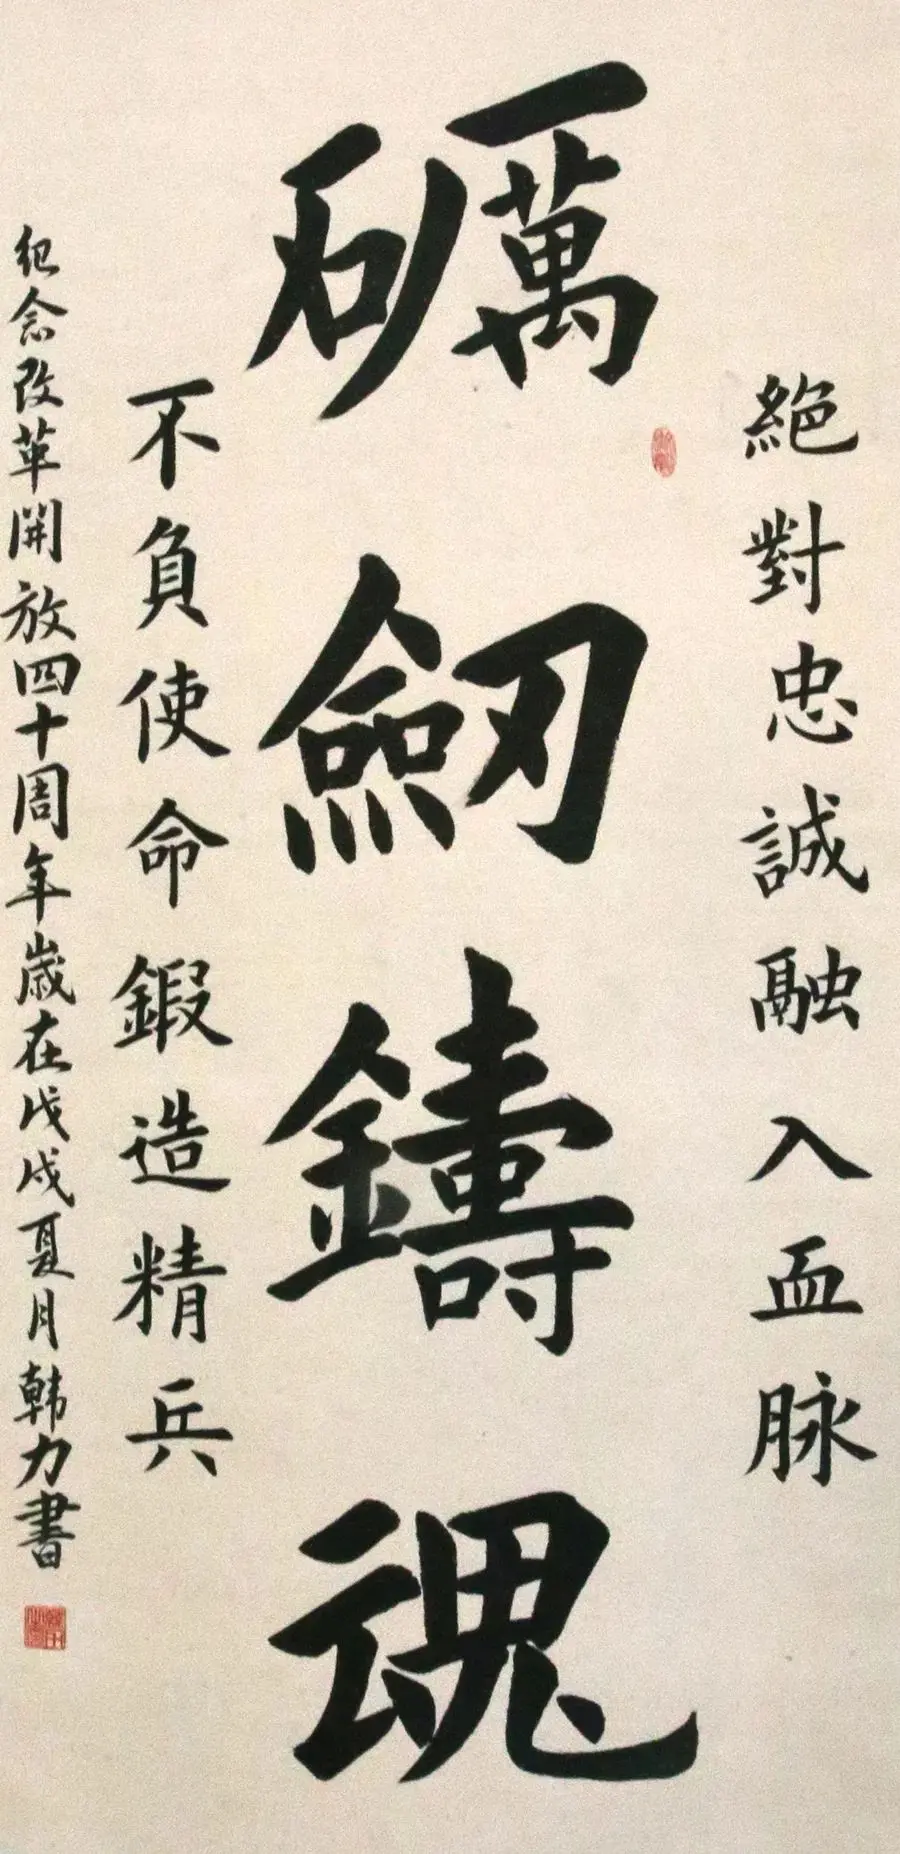 絕對忠誠融入血脉
礪劒鑄魂
不負使命鍛造精兵
紀念改革開放四十周年歲在戊戌夏月韩力書